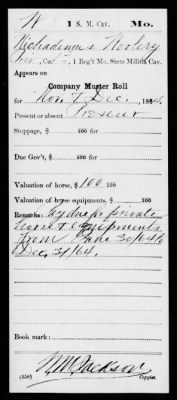 W 1 S. M. Cav. Mo.
Nichademus Woolery
Co. 1 Reg't Mo. State Militia Cav.
Appears on
Company Muster Roll
for Nov. & Dec., 1864.
Present or absent Present
Stoppage, $ 100 for
Due Gov't, $ 100 for
Valuation of horse, $ 100 100
Valuation of horse equipments, $ 100
Remarks: private
horse & equipments
from June 30/64 to
Dec. 31/64.
Book mark:
W M Jackson
(358) Copyist.